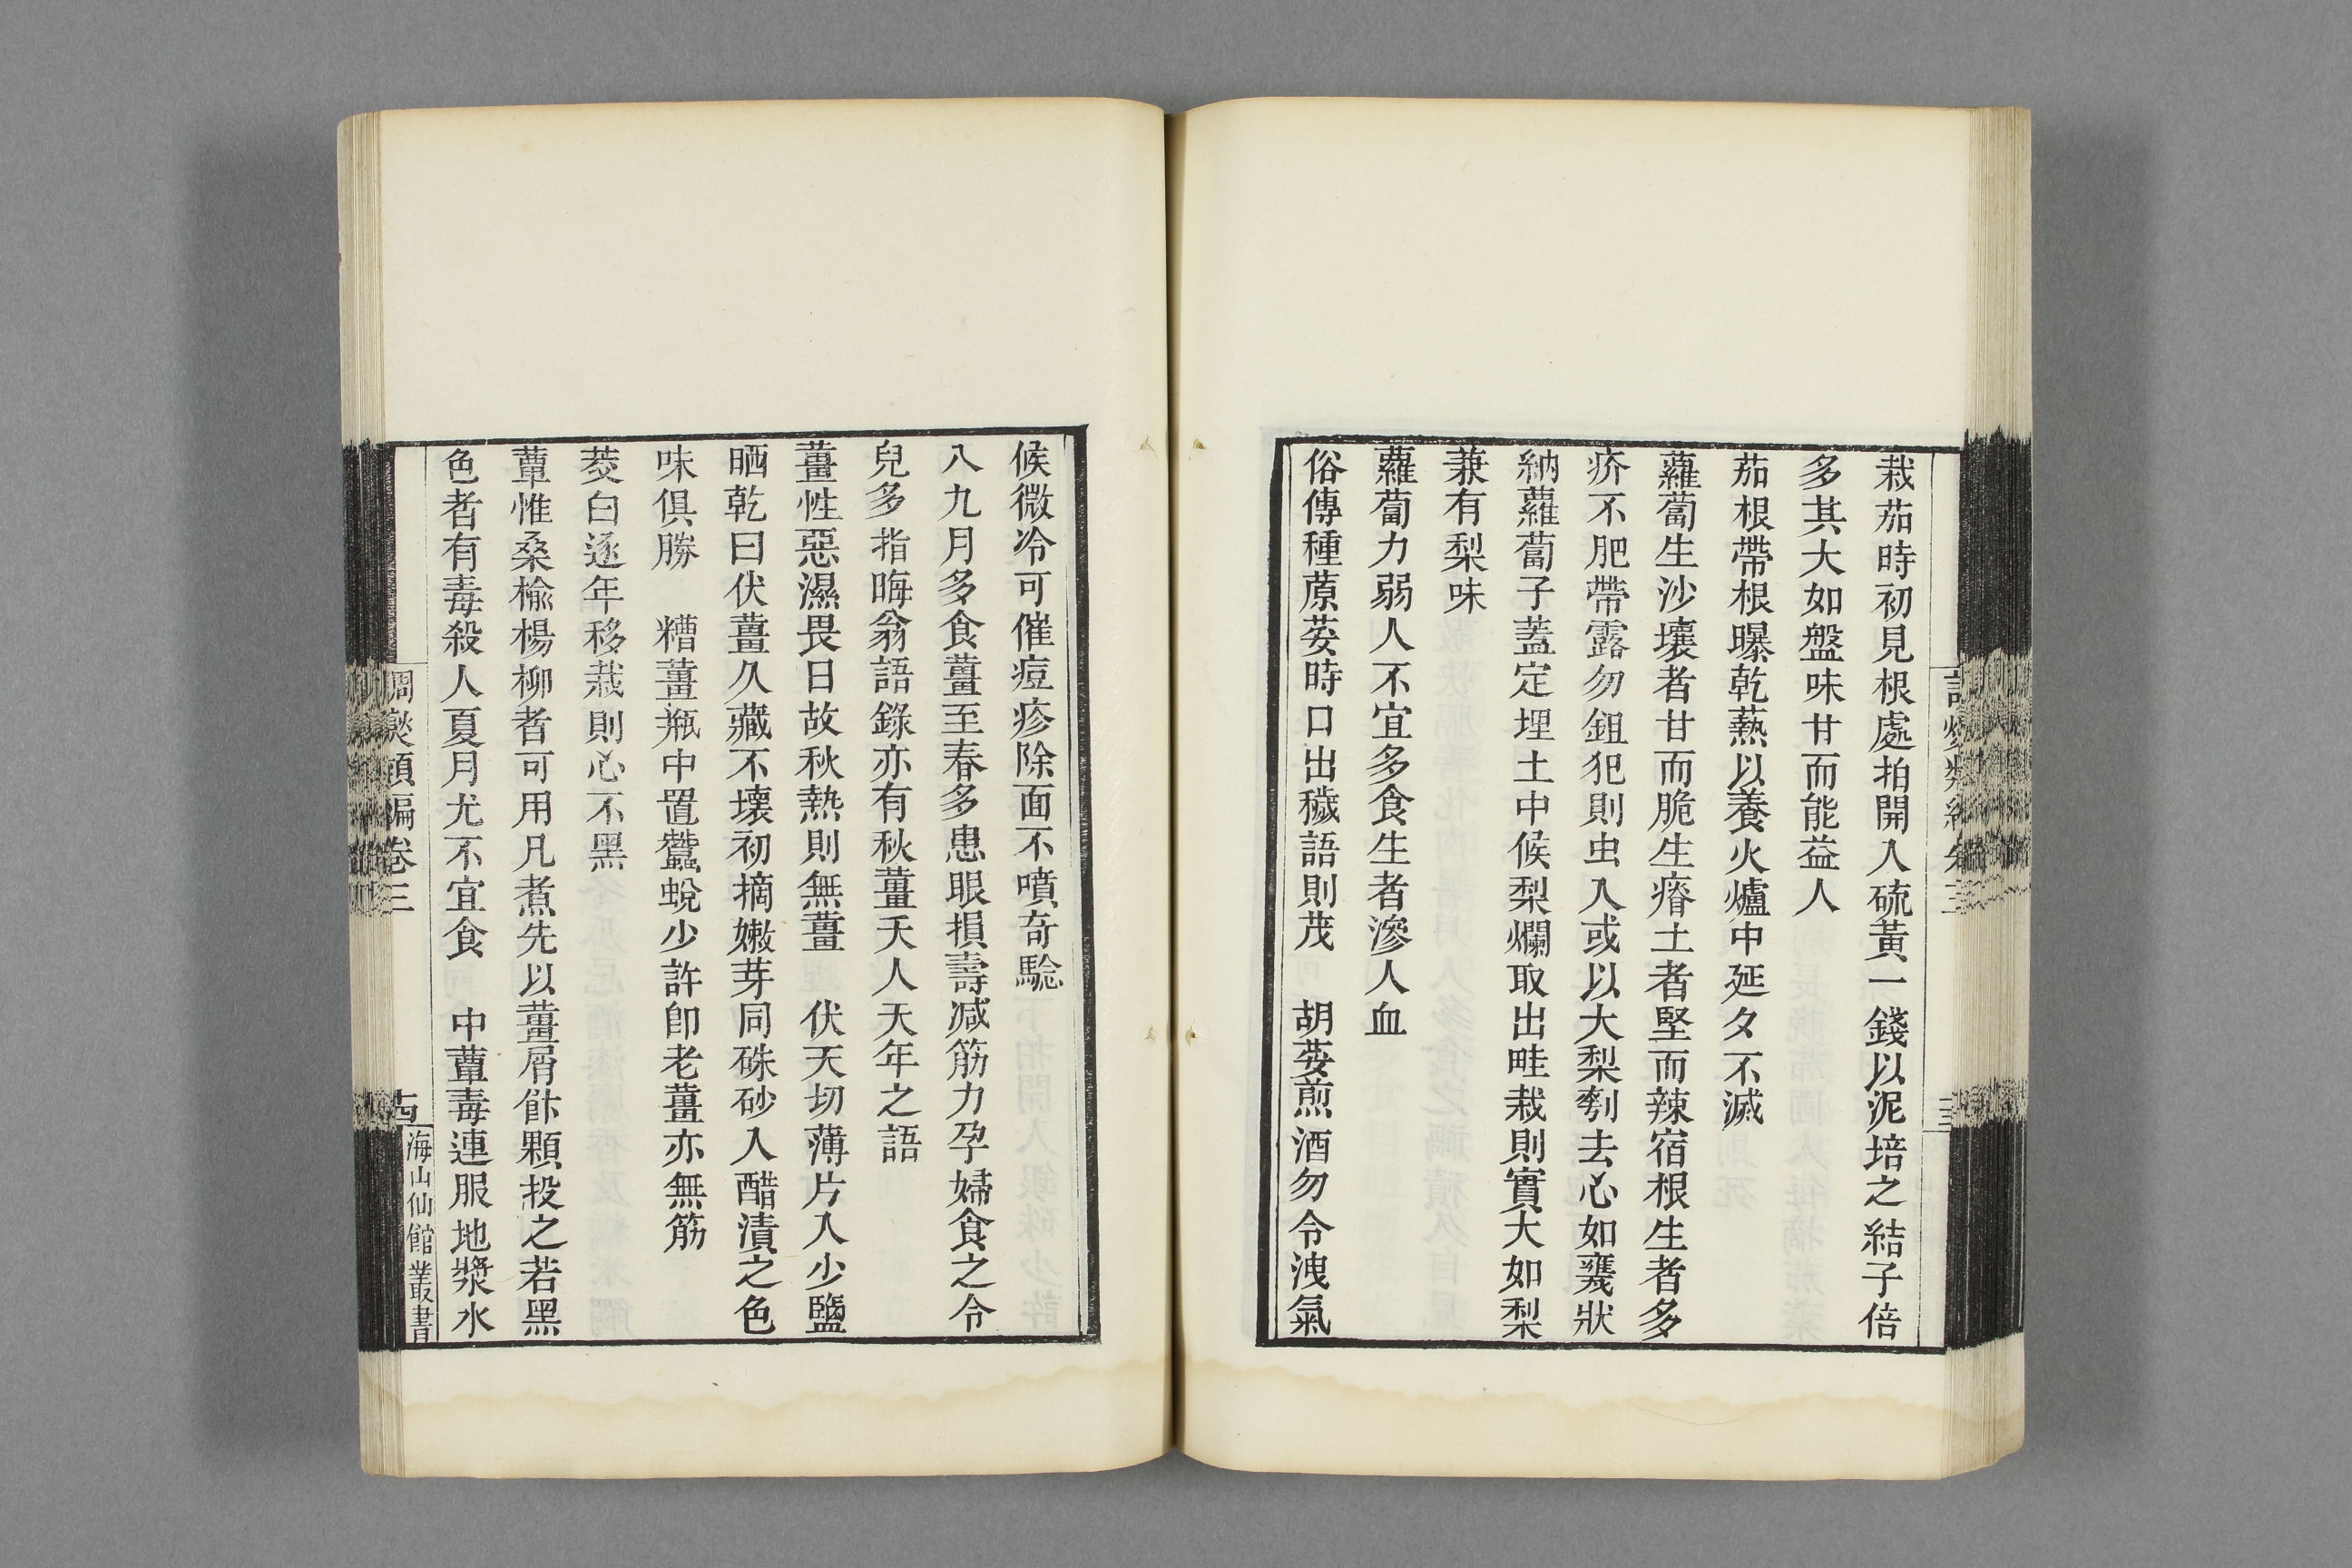 栽茄時初見根處拍開入硫黃一錢以泥培之結子倍
多其大如盤味甘而能益人
茄根帶根曝乾爇以養火爐中延夕不滅
蘿蔔生沙壤者甘而脆生瘠土者堅而辣宿根生者多
疥不肥帶露勿鉏犯則虫入或以大梨刳去心如甕狀
納蘿蔔子蓋定埋土中候梨爛取出畦栽則實大如梨
兼有梨味
蘿蔔力弱人不宜多食生者滲人血
俗傳種蒝荽時口出穢語則茂　胡荽煎酒勿令洩氣
候微冷可催痘疹除面不噴奇驗
八九月多食薑至春多患眼損壽減筋力孕婦食之令
兒多指晦翁語錄亦有秋薑夭人天年之語
薑性惡濕畏日故秋熱則無薑　伏天切薄片入少鹽
晒乾曰伏薑久藏不壞初摘嫩芽同硃砂入醋漬之色
味俱勝　糟薑瓶中置蟬蛻少許卽老薑亦無筋
茭白逐年移栽則心不黑
蕈惟桑榆楊柳者可用凡煮先以薑屑飰顆投之若黑
色者有毒殺人夏月尤不宜食　中蕈毒連服地漿水
調燮類編卷三
十四
海山仙館叢書